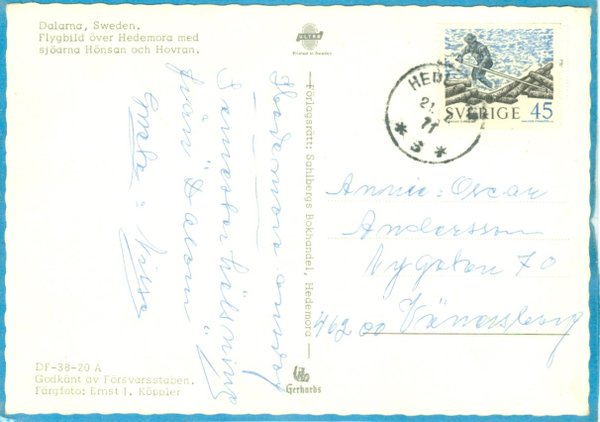 Dalarna, Sweden.
Flygbild över Hedemora med
sjöarna Hönsan och Hovran.
ULTRA
Printed in Sweden
SVERIGE 45
HEDE
21.
71
* 3 *
Hedemora onsdag
Semesterhälsning
från "Dalom"!
Greta - Nisse
Förlagsrätt: Sahlbergs Bokhandel, Hedemora
Annie-Oscar
Andersson
Nygatan 70
462 00 Vänersborg
DF-38-20 A
Godkänt av Försvarsstaben.
Färgfoto: Ernst J. Köppler
Gerhards